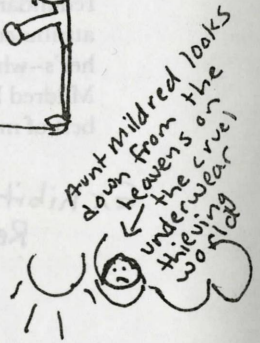 Aunt mildred looks
down from the
heavens on
the cruel
underwear
thieving
world